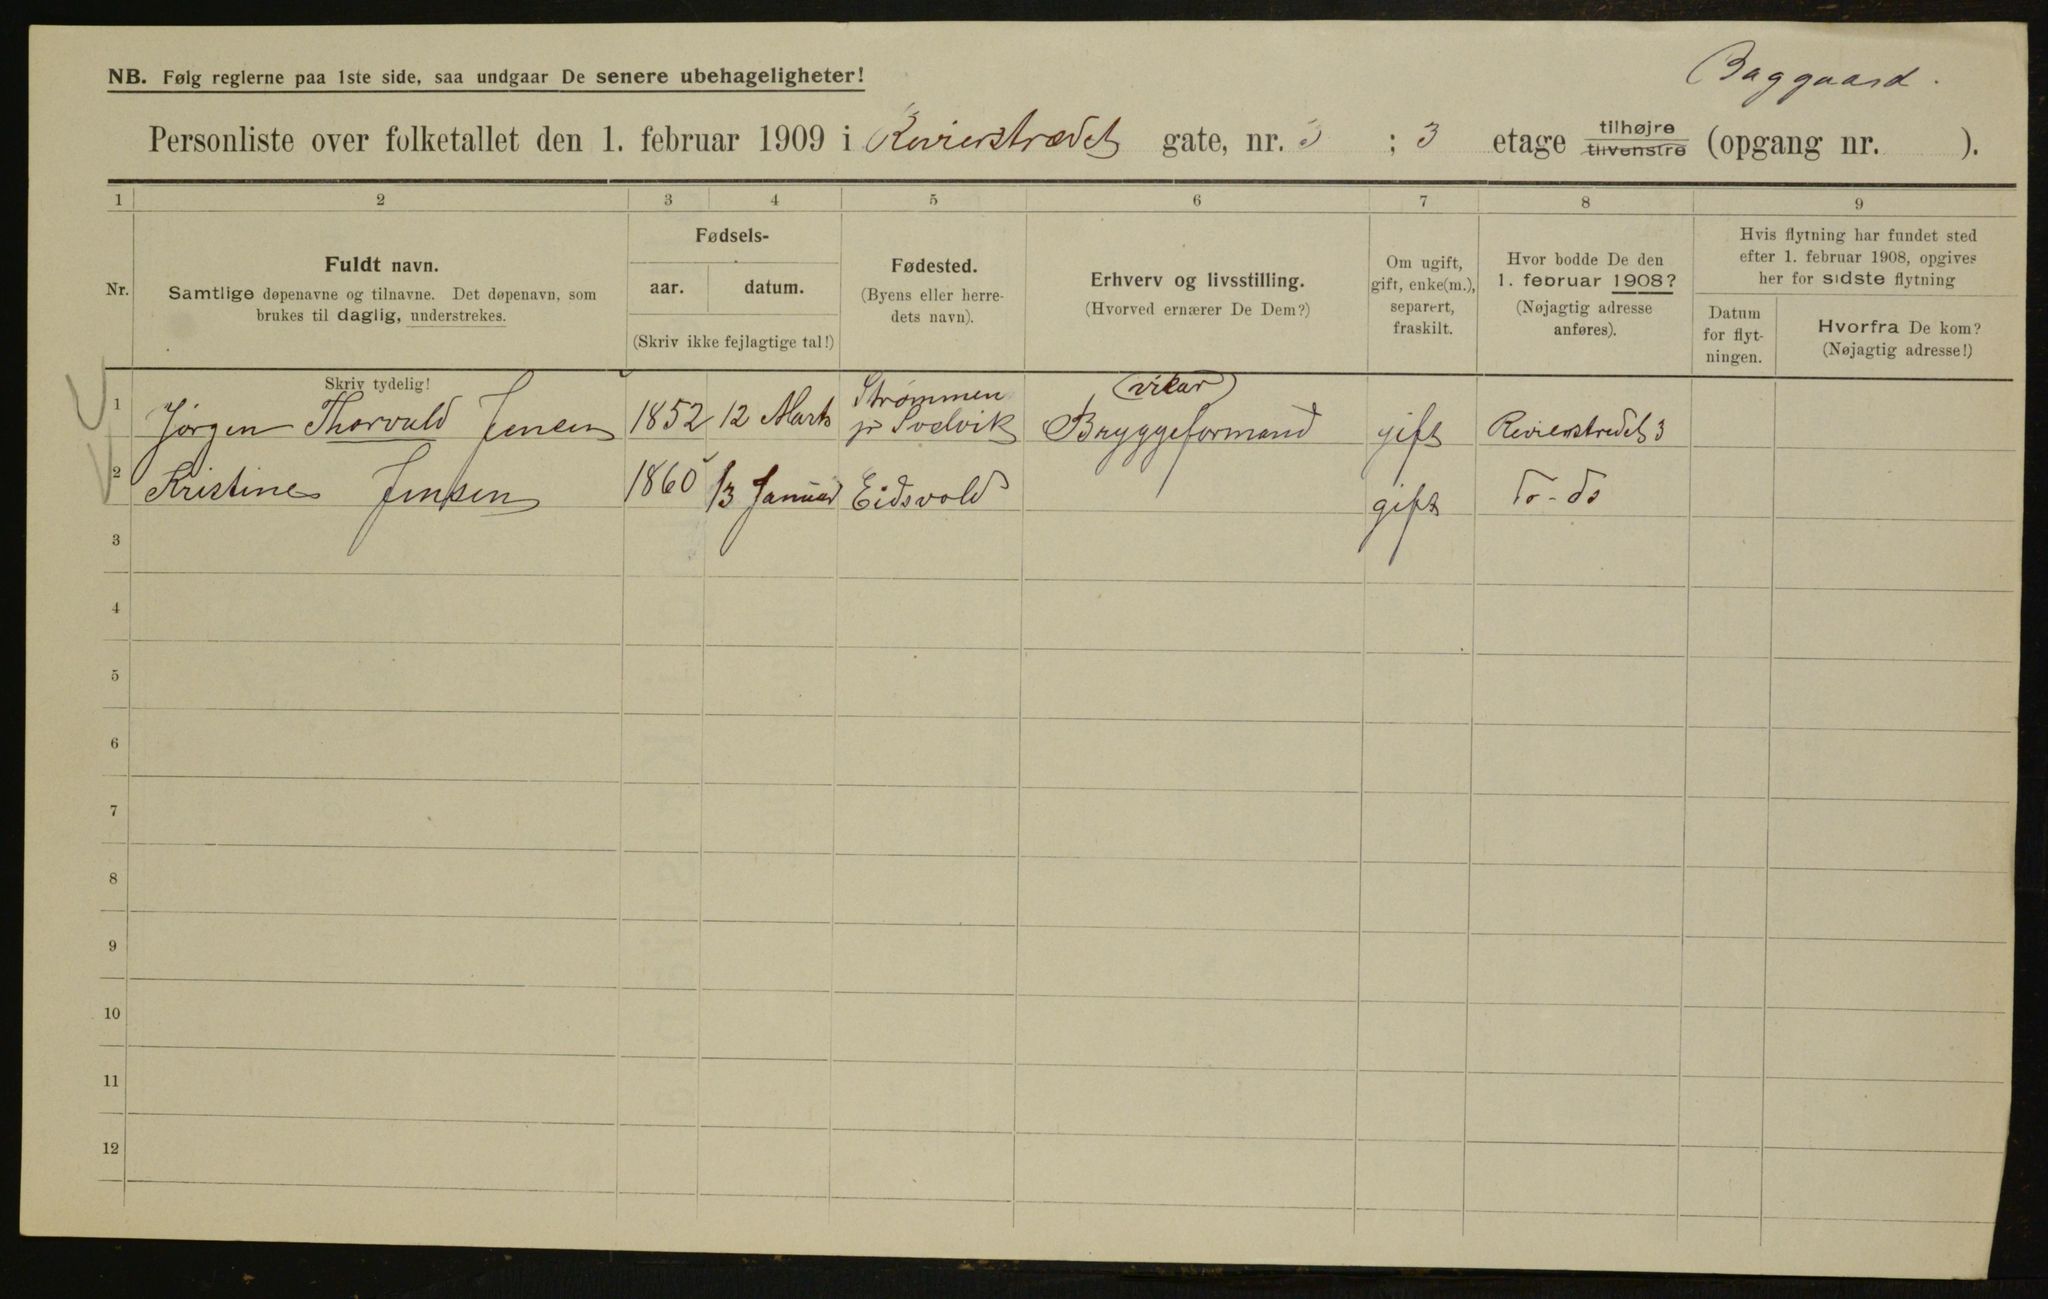 Baggaard.
NB. Følg reglerne paa 1ste side, saa undgaar De senere ubehageligheter!
Personliste over folketallet den 1. februar 1909 i Revierstrædet gate, nr. 3 ; 3 etage tilhøjre tilvenstre (opgang nr. ).
1 2 3 4 5 6 7 8 9
Nr.
Fuldt navn.
Samtlige døpenavne og tilnavne. Det døpenavn, som
brukes til daglig, understrekes.
Skriv tydelig!
Fødsels-
aar. datum.
(Skriv ikke fejlagtige tal!)
Fødested.
(Byens eller herre-
dets navn).
Erhverv og livsstilling.
(Hvorved ernærer De Dem?)
Om ugift,
gift, enke(m.),
separert,
fraskilt.
Hvor bodde De den
1. februar 1908?
(Nøjagtig adresse
anføres).
Hvis flytning har fundet sted
efter 1. februar 1908, opgives
her for sidste flytning
Datum
for flyt-
ningen.
Hvorfra De kom?
(Nøjagtig adresse!)
1 Jørgen Thorvald Jensen 1852 12 Marts Strømmen
pr Svelvik
vikar
Bryggeformand gift Revierstredet 3
2 Kristine Jensen 1860 13 Januar Eidsvold gift do - do
3
4
5
6
7
8
9
10
11
12